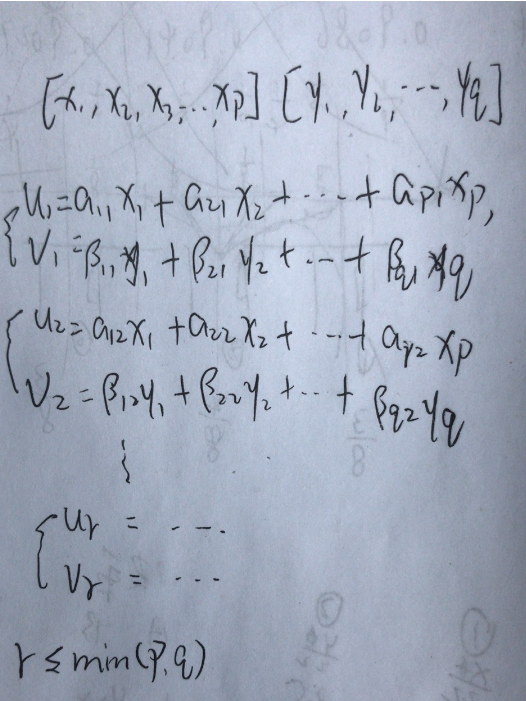 [x₁, x₂, x₃, ... xp] [y₁, y₂, ..., yq]
u₁ = a₁₁x₁ + a₂₁x₂ + ... + ap₁xp,
v₁ = β₁₁y₁ + β₂₁y₂ + ... + βq₁yq
u₂ = a₁₂x₁ + a₂₂x₂ + ... + ap₂xp
v₂ = β₁₂y₁ + β₂₂y₂ + ... + βq₂yq
ur = ....
vr = ...
r ≤ min(p, q)